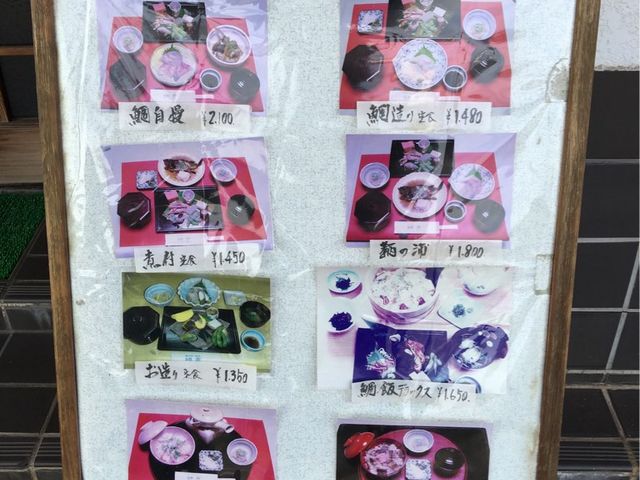 鯛自慢 ¥2.100
鯛造り定食 ¥1.480
煮付定食 ¥1.450
鞆の浦 ¥1.800
お造り定食 ¥1.350
鯛飯デラックス ¥1.650.